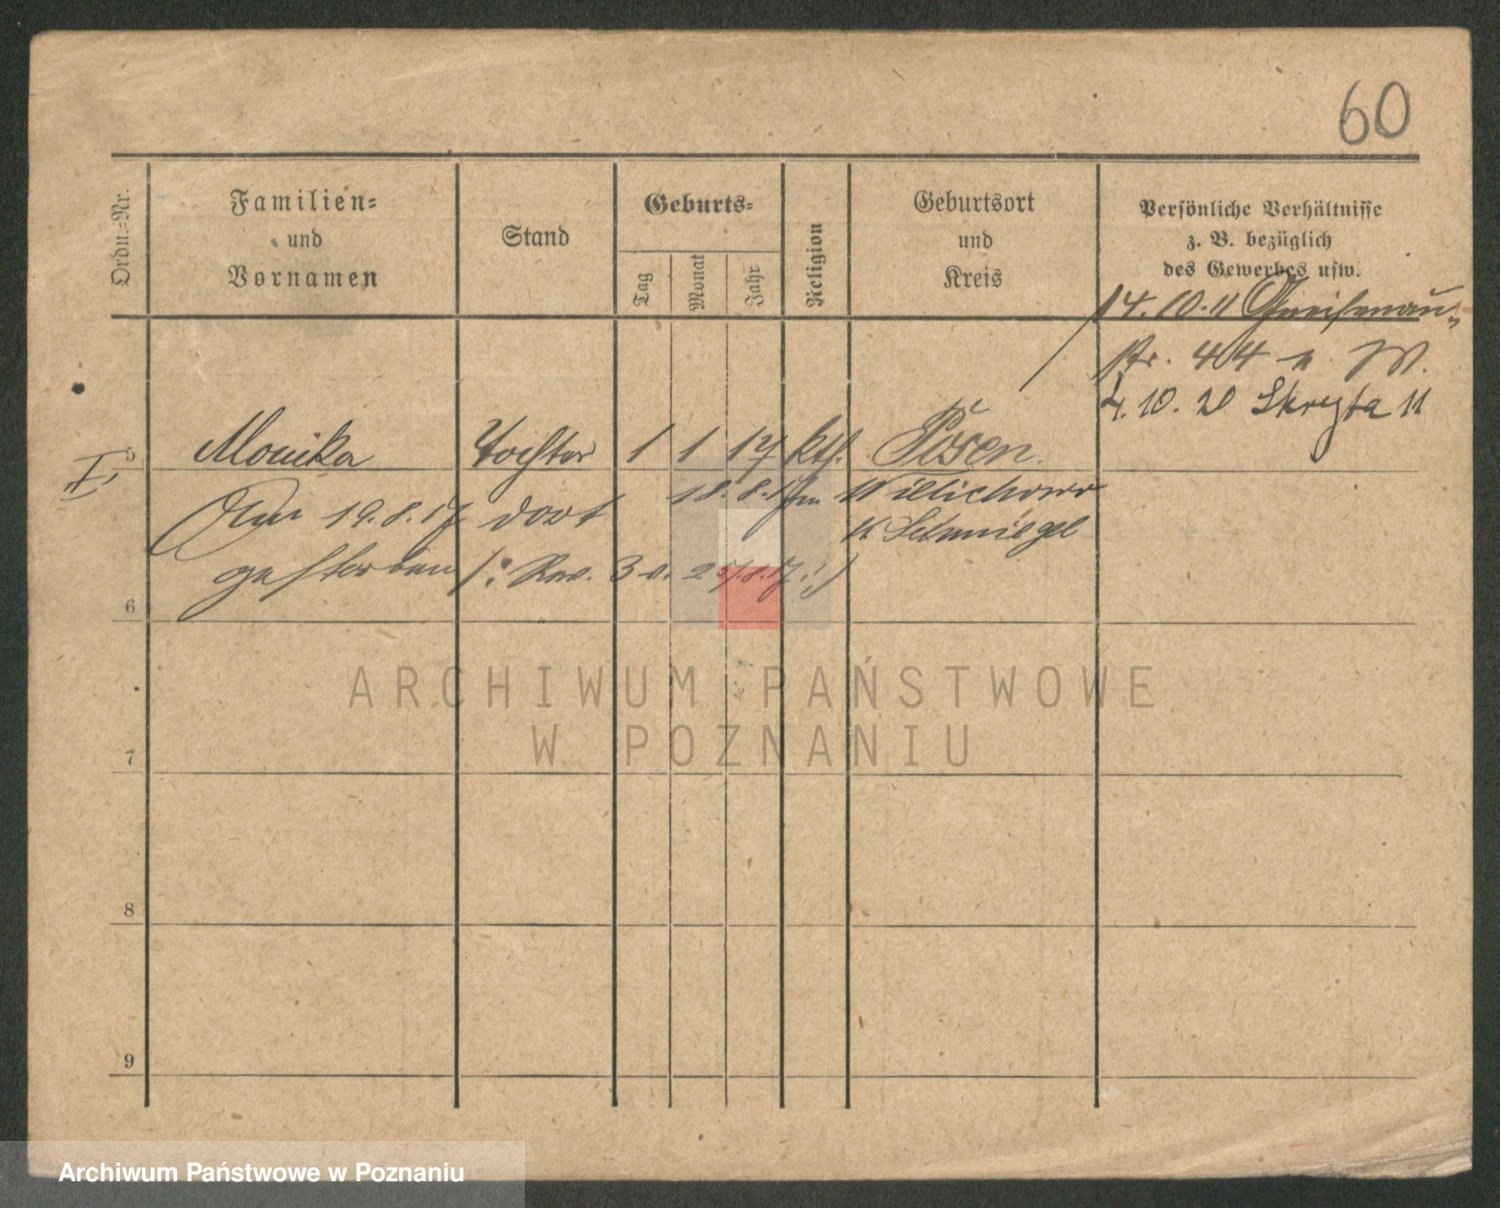 60
Ordn.-Nr.
Familien-
und
Vornamen
Stand
Geburts-
Tag
Monat
Jahr
Religion
Geburtsort
und
Kreis
Persönliche Verhältnisse
z. B. bezüglich
des Gewerbes usw.
14.10.11 Gneisenau-
str. 44 n. W.
4.10.20 Skryta 11
5 Monika Tochter 1 1 17 kth. Posen
I,
Am 19.8.17 dort
18.8.17 in Willichowo
K Schmiegel
gestorben /: Rev. 3 v. 25/.8.17 :/
6
ARCHIWUM PAŃSTWOWE
W POZNANIU
7
8
9
Archiwum Państwowe w Poznaniu